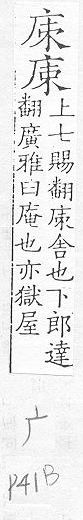 㡹
上七賜翻㡹舍也下郎達
翻廣雅曰庵也亦獄屋
广
P41B